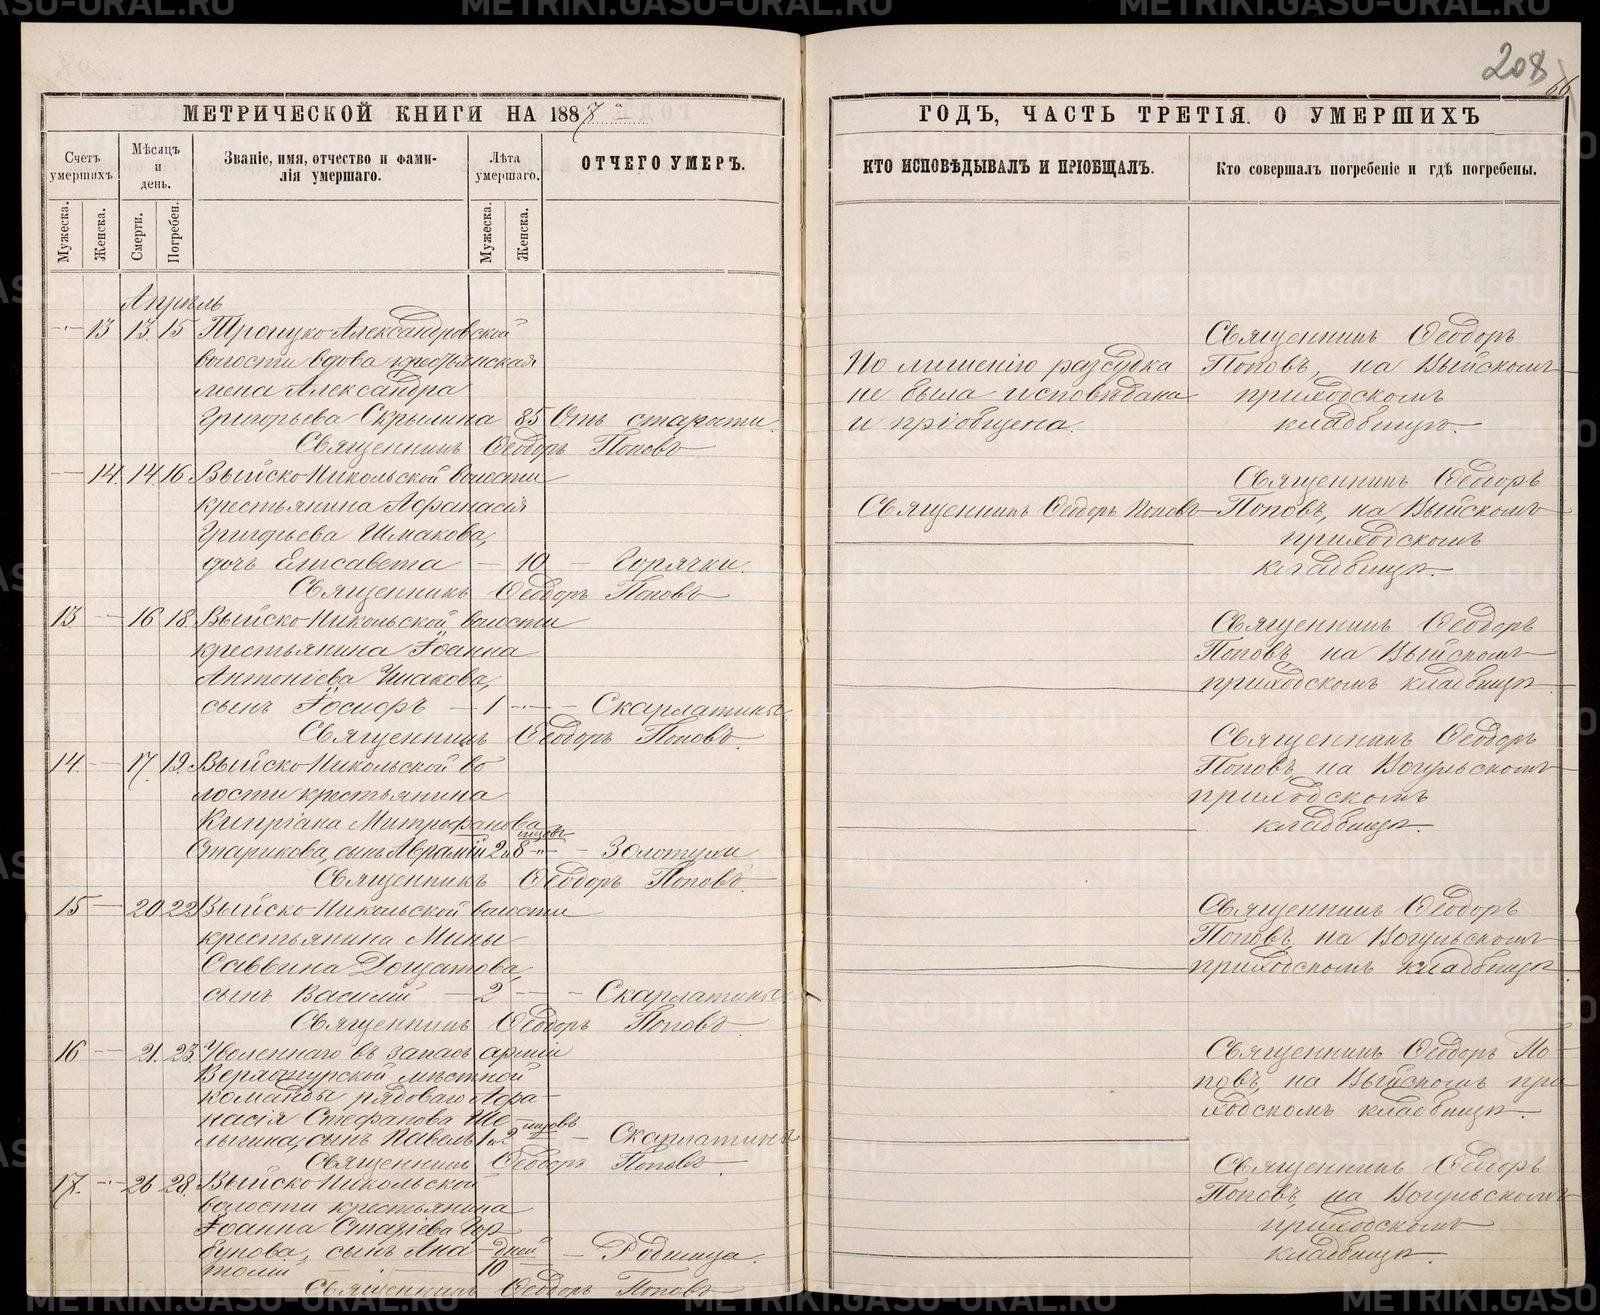 208
66
МЕТРИЧЕСКОЙ КНИГИ НА 1887
ГОДЪ, ЧАСТЬ ТРЕТІЯ. О УМЕРШИХЪ
Счетъ умершихъ.
Мѣсяцъ и день.
Званіе, имя, отчество и фами-
лія умершаго.
Лѣта умершаго.
ОТЧЕГО УМЕРЪ.
КТО ИСПОВѢДЫВАЛЪ И ПРІОБЩАЛЪ.
Кто совершалъ погребеніе и гдѣ погребены.
Мужеска.
Женска.
Смерти.
Погребен.
Мужеска.
Женска.
Апрѣль
13 13 15 Троицко Александровской
волости вдова крестьянская
жена Александра
Григорьева Скрылина 85 Отъ старости.
Священникъ Ѳеодоръ Поповъ
По лишенію разсудка
не была исповѣдана
и пріобщена.
Священникъ Ѳеодоръ
Поповъ, на Выйскомъ
приходскомъ
кладбищѣ.
14. 14. 16 Выйско Никольской волости
крестьянина Аѳанасія
Григорьева Шмакова,
дочь Елисавета 10 Горячки.
Священникъ Ѳеодоръ Поповъ
Священникъ Ѳеодоръ Поповъ
Священникъ Ѳеодоръ
Поповъ, на Выйскомъ
приходскомъ
кладбищѣ.
13. 16 18. Выйско Никольской волости
крестьянина Іоанна
Антоніева Ушакова,
сынъ Іосифъ 1 Скарлатины
Священникъ Ѳеодоръ Поповъ.
Священникъ Ѳеодоръ
Поповъ на Выйскомъ
приходскомъ кладбищѣ
14. 17. 19. Выйско Никольской во
лости крестьянина
Кипріана Митрофанова
Старикова, сынъ Аврамій 2 и 8 мѣсяцевъ Золотухи
Священникъ Ѳеодоръ Поповъ.
Священникъ Ѳеодоръ
Поповъ, на Вогульскомъ
приходскомъ
кладбищѣ.
15 20 22 Выйско Никольской волости
крестьянина Мины
Саввина Дощатова,
сынъ Василій 2 Скарлатины
Священникъ Ѳеодоръ Поповъ.
Священникъ Ѳеодоръ
Поповъ, на Вогульскомъ
приходскомъ кладбищѣ
16 21. 23. Уволеннаго въ запасъ арміи
Верхотурской мѣстной
команды рядоваго Аѳа-
насія Стефанова
сынъ Павелъ 1 и 2 Скарлатины
Священникъ Ѳеодоръ Поповъ.
Священникъ Ѳеодоръ По
повъ, на Выйскомъ при
ходскомъ кладбищѣ.
17. 26 28. Выйско Никольской
волости крестьянина
Іоанна Стахіева Гор
бунова, сынъ Ана
толій 10 дней Родимца.
Священникъ Ѳеодоръ Поповъ
Священникъ Ѳеодоръ
Поповъ, на Вогульскомъ
приходскомъ
кладбищѣ.
METRIKI.GASO-URAL.RU